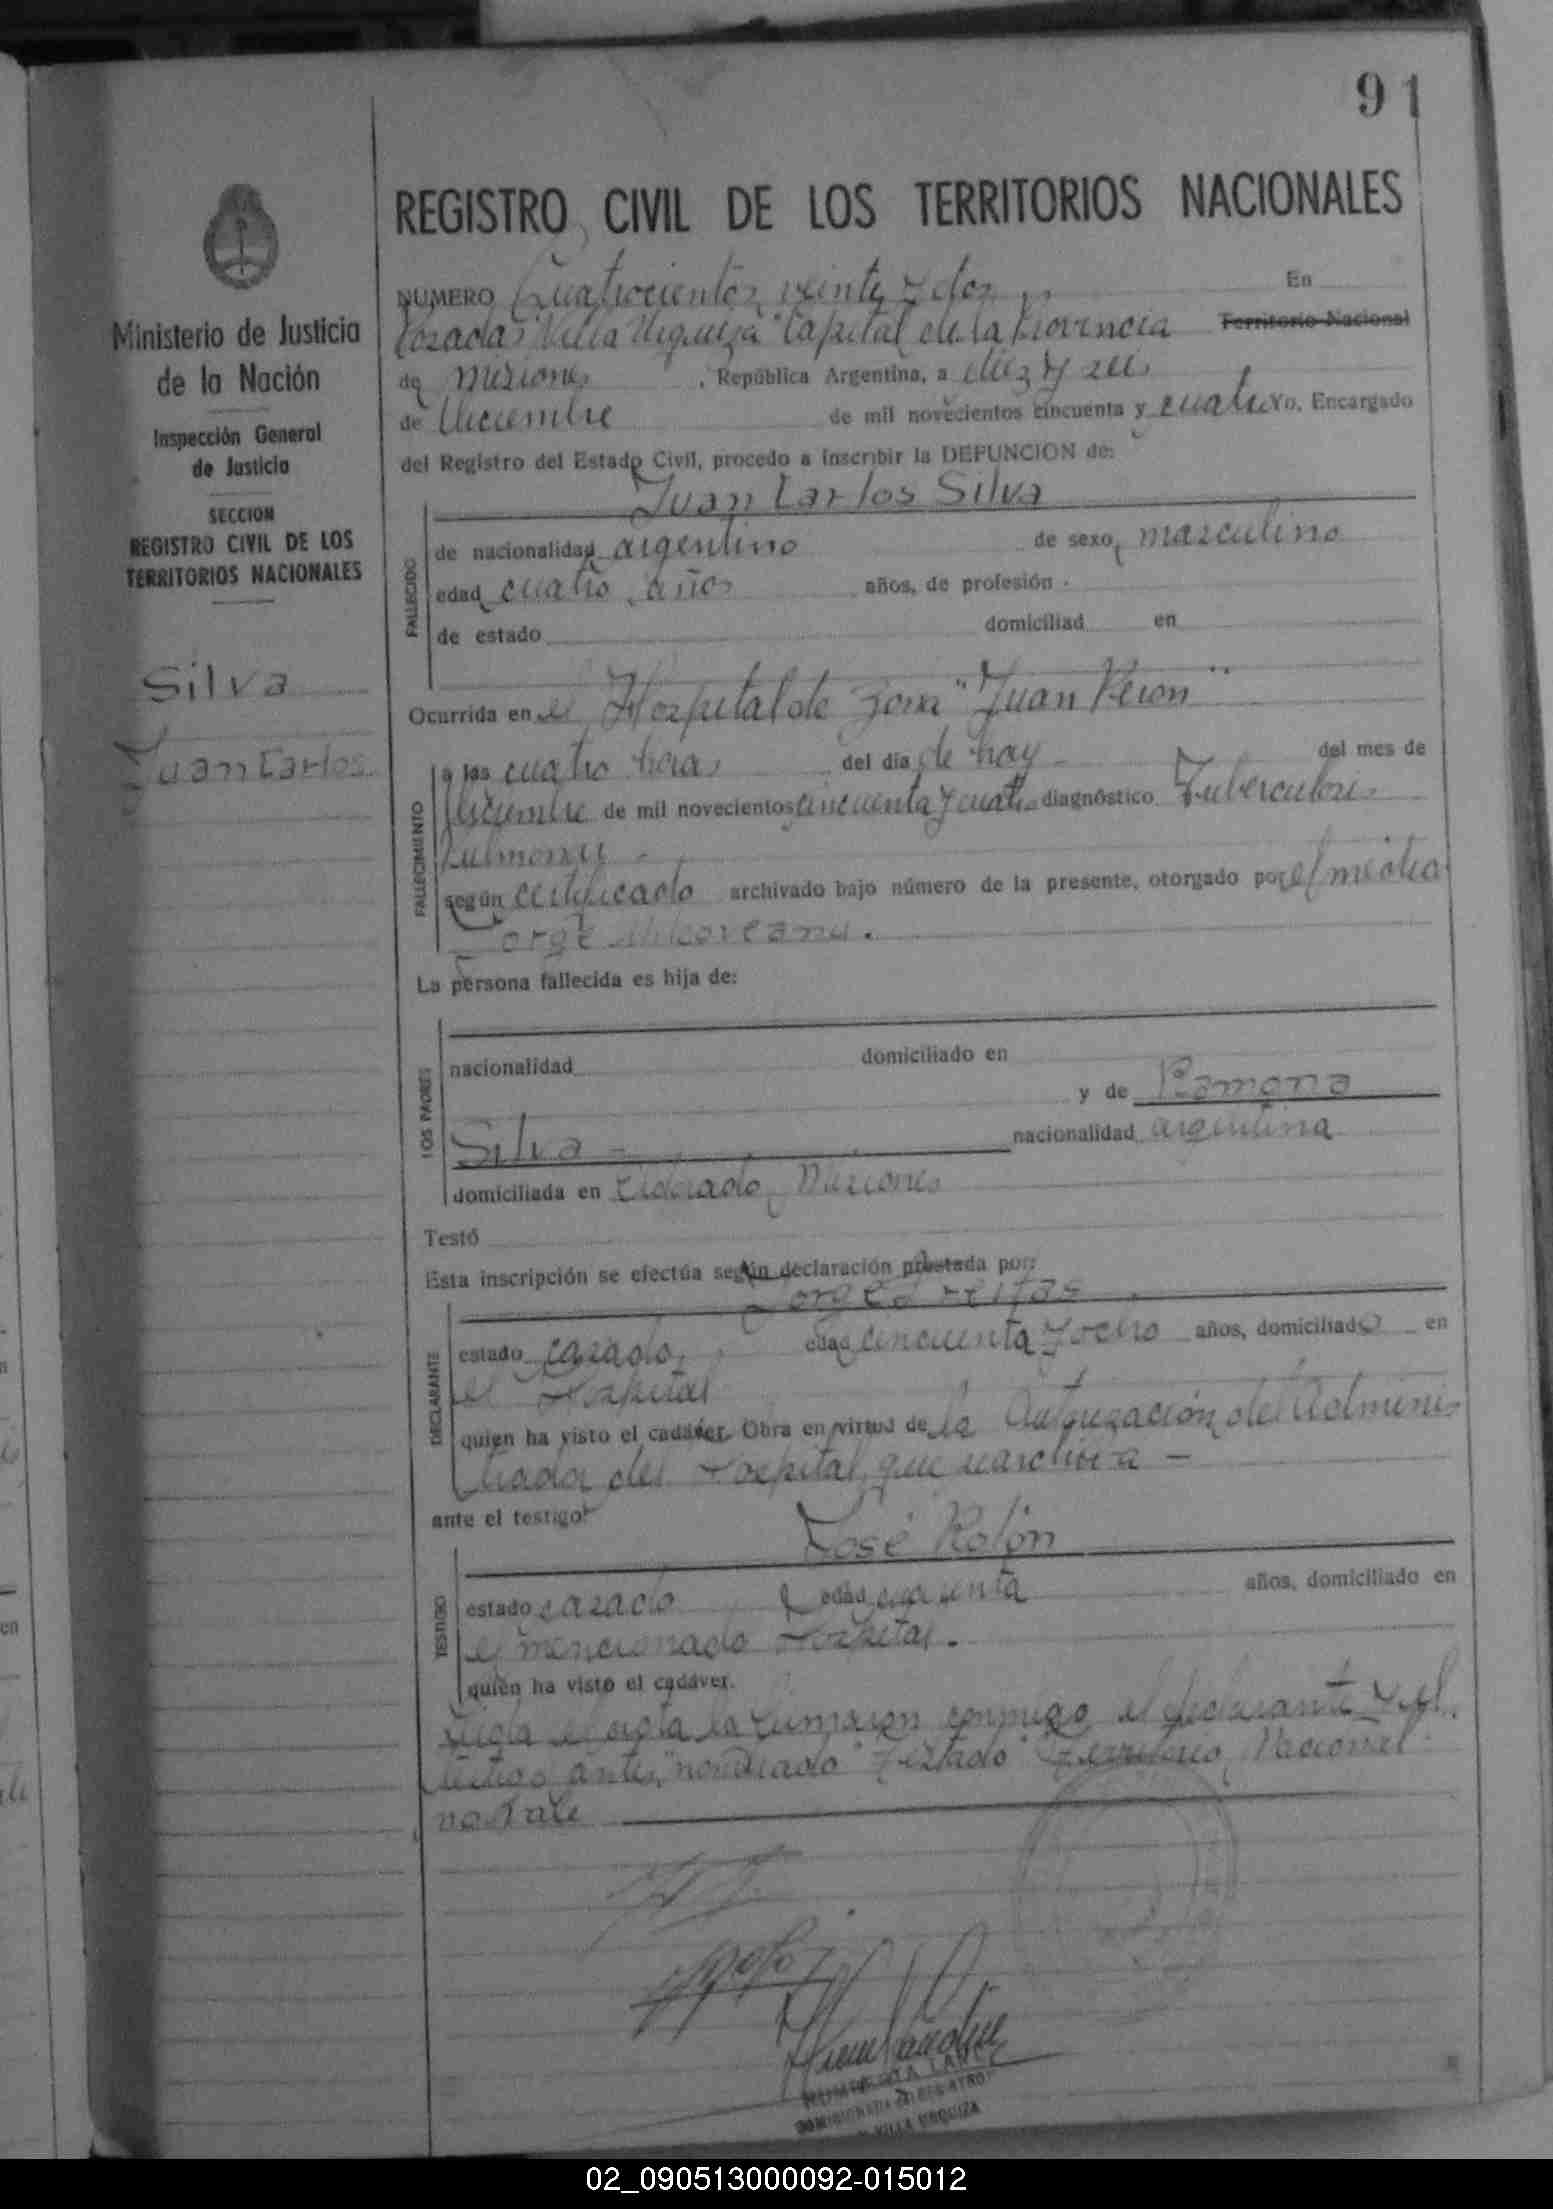 91
REGISTRO CIVIL DE LOS TERRITORIOS NACIONALES
Ministerio de Justicia
de la Nación
Inspección General
de Justicia
SECCION
REGISTRO CIVIL DE LOS
TERRITORIOS NACIONALES
Silva
Juan Carlos
NUMERO Cuatrocientos veinte y dos En
Posadas "Villa Urquiza" Capital de la Provincia Territorio Nacional
de Misiones, República Argentina, a diez y seis
de Diciembre de mil novecientos cincuenta y cuatro Yo, Encargado
del Registro del Estado Civil, procedo a inscribir la DEFUNCION de:
Juan Carlos Silva
FALLECIDO
de nacionalidad argentino de sexo masculino
edad cuatro años años, de profesión
de estado domiciliad en
Ocurrida en el Hospital de Zona "Juan Peron"
FALLECIMIENTO
a las cuatro horas del día de hoy del mes de
Diciembre de mil novecientos cincuenta y cuatro diagnóstico Tuberculosis
Pulmonar -
según certificado archivado bajo número de la presente, otorgado por el médico
Jorge .
La persona fallecida es hija de:
LOS PADRES
nacionalidad domiciliado en
y de Ramona
Silva - nacionalidad argentina
domiciliada en Eldorado, Misiones
Testó
Esta inscripción se efectúa según declaración prestada por:
Jorge Freitas
DECLARANTE
estado casado, edad cincuenta y ocho años, domiciliado en
el Hospital
quien ha visto el cadáver. Obra en virtud de la Autorización del Adminis
trador del Hospital, que se archiva -
ante el testigo:
José Rolón
TESTIGO
estado casado edad cuarenta años, domiciliado en
el mencionado Hospital.
quien ha visto el cadáver.
Leida el acta la firmaron conmigo el declarante y el
testigo antes nombrado Testado "Territorio Nacional"
no vale
VILLA URQUIZA
02_090513000092-015012